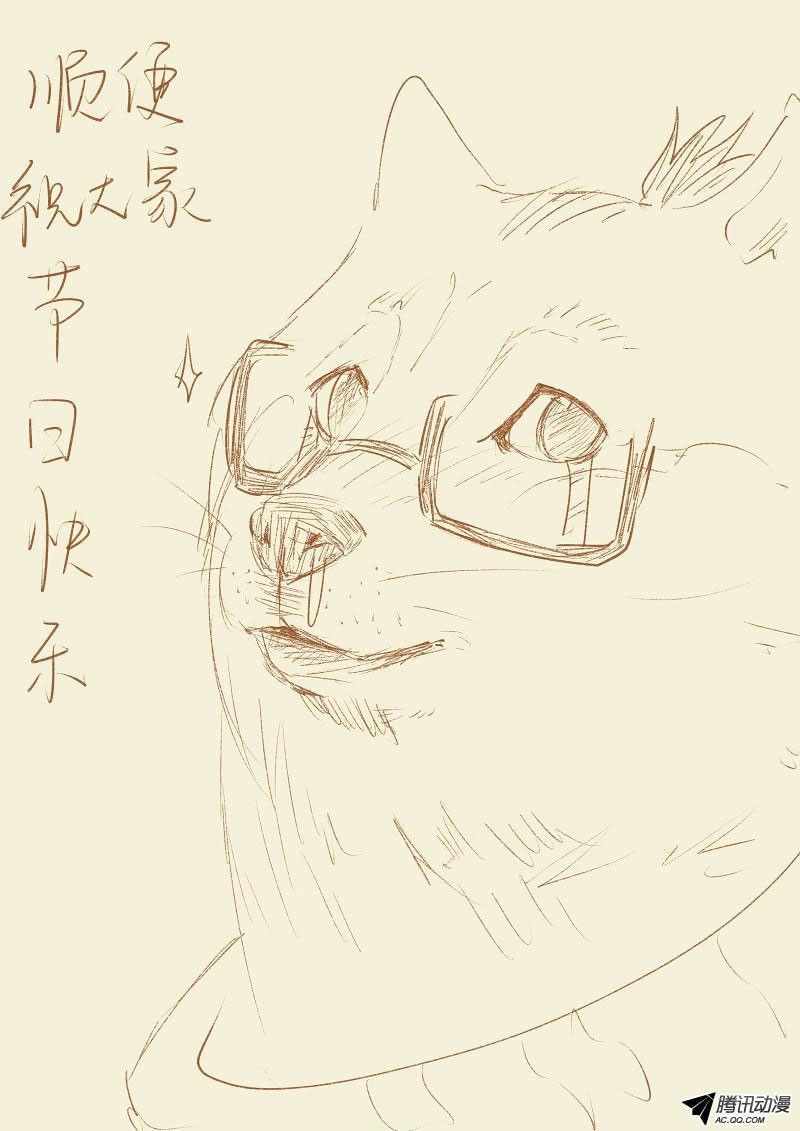 顺便
祝大家
节
日
快
乐
腾讯动漫
AC.QQ.COM